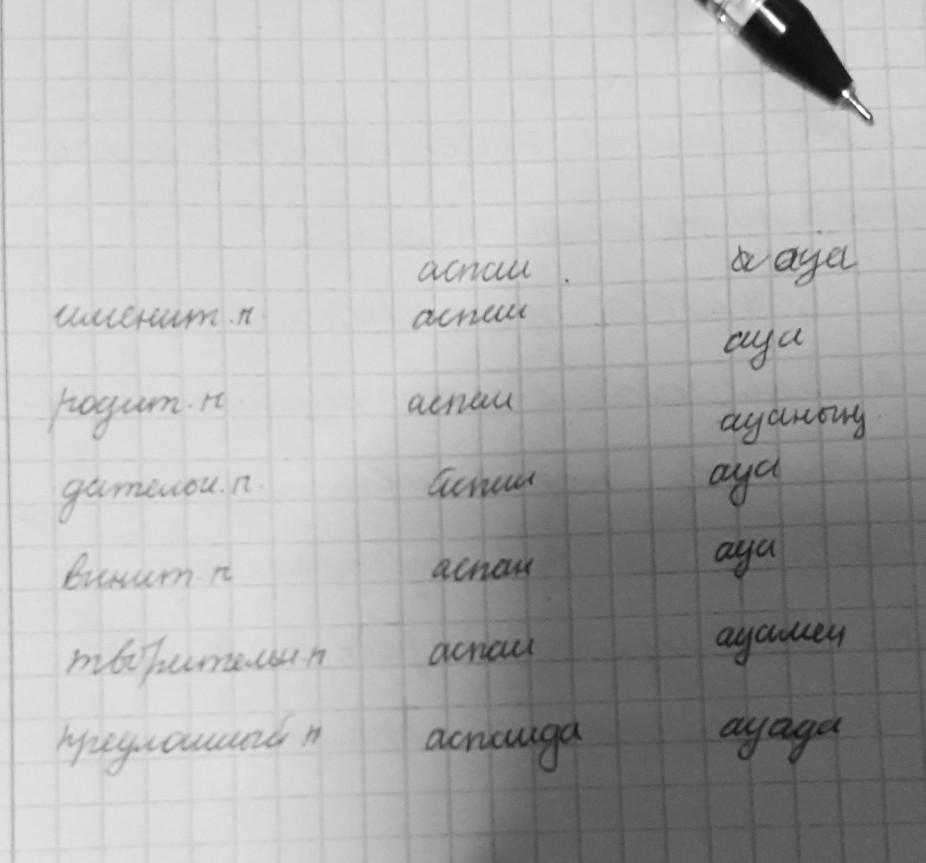 аспан . ауа
именит.п. аспан ауа
родит.п аспан ауаның
дательн.п. аспан ауа
винит.п аспан ауа
творительн.п аспан ауамен
предложный п аспанда ауада